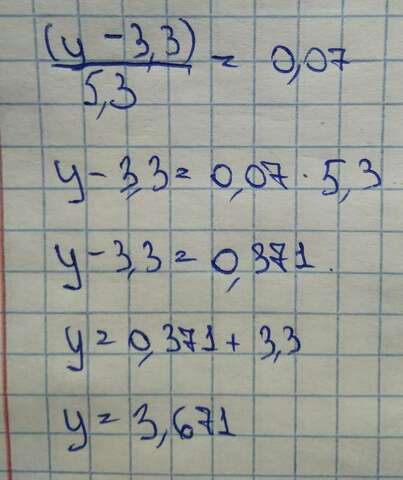 (y - 3,3) / 5,3 = 0,07
y - 3,3 = 0,07 · 5,3
y - 3,3 = 0,371.
y = 0,371 + 3,3
y = 3,671